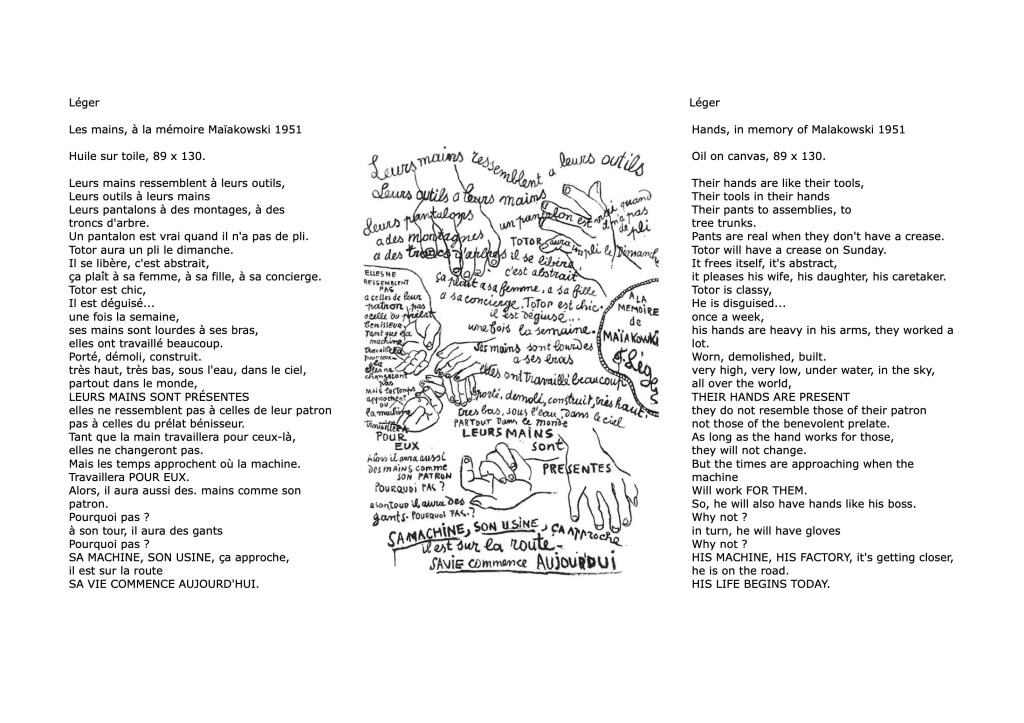 Léger
Les mains, à la mémoire Maïakowski 1951
Huile sur toile, 89 x 130.
Leurs mains ressemblent à leurs outils,
Leurs outils à leurs mains
Leurs pantalons à des montages, à des
troncs d'arbre.
Un pantalon est vrai quand il n'a pas de pli.
Totor aura un pli le dimanche.
Il se libère, c'est abstrait,
ça plaît à sa femme, à sa fille, à sa concierge.
Totor est chic,
Il est déguisé...
une fois la semaine,
ses mains sont lourdes à ses bras,
elles ont travaillé beaucoup.
Porté, démoli, construit.
très haut, très bas, sous l'eau, dans le ciel,
partout dans le monde,
LEURS MAINS SONT PRÉSENTES
elles ne ressemblent pas à celles de leur patron
pas à celles du prélat bénisseur.
Tant que la main travaillera pour ceux-là,
elles ne changeront pas.
Mais les temps approchent où la machine.
Travaillera POUR EUX.
Alors, il aura aussi des. mains comme son
patron.
Pourquoi pas ?
à son tour, il aura des gants
Pourquoi pas ?
SA MACHINE, SON USINE, ça approche,
il est sur la route
SA VIE COMMENCE AUJOURD'HUI.
Leurs mains ressemblent a leurs outils
Leurs outils a leurs mains
leurs pantalons
a des montagnes
a des troncs d'arbres
un pantalon est vrai quand
il n'a pas
de pli
TOTOR aura un pli le Dimanche
il se libère
c'est abstrait
ça plait a sa femme, a sa fille
a sa concierge. TOTOR EST chic.
il est déguisé...
une fois la semaine.
ses mains sont lourdes
a ses bras
elles ont travaillé beaucoup
porté, demoli, construit, très haut,
tres bas, sous l'eau, Dans le ciel
PARTOUT DANS le monde
LEURS MAINS
sont
PRESENTES
ELLES NE
RESSEMBLENT
PAS
a celles de leur
patron pas
a celle du prélat
benisseur.
Tant que la
machine
travaillera
pour ceux-la
elles ne
changeront
pas
MAIS les temps
approchent
où
la machine
travaillera
POUR
EUX
Alors il aura aussi
DES MAINS COMME
SON PATRON
POURQUOI PAS ?
a son tour il aura des
gants. POURQUOI PAS. ?
SA MACHINE, SON USINE, ÇA APPROCHE
il est sur la route -
SA VIE commence AUJOURDUI
A LA
MEMOIRE
de
MAÏAKOWSKI
F. Léger
Léger
Hands, in memory of Malakowski 1951
Oil on canvas, 89 x 130.
Their hands are like their tools,
Their tools in their hands
Their pants to assemblies, to
tree trunks.
Pants are real when they don't have a crease.
Totor will have a crease on Sunday.
It frees itself, it's abstract,
it pleases his wife, his daughter, his caretaker.
Totor is classy,
He is disguised...
once a week,
his hands are heavy in his arms, they worked a
lot.
Worn, demolished, built.
very high, very low, under water, in the sky,
all over the world,
THEIR HANDS ARE PRESENT
they do not resemble those of their patron
not those of the benevolent prelate.
As long as the hand works for those,
they will not change.
But the times are approaching when the
machine
Will work FOR THEM.
So, he will also have hands like his boss.
Why not ?
in turn, he will have gloves
Why not ?
HIS MACHINE, HIS FACTORY, it's getting closer,
he is on the road.
HIS LIFE BEGINS TODAY.